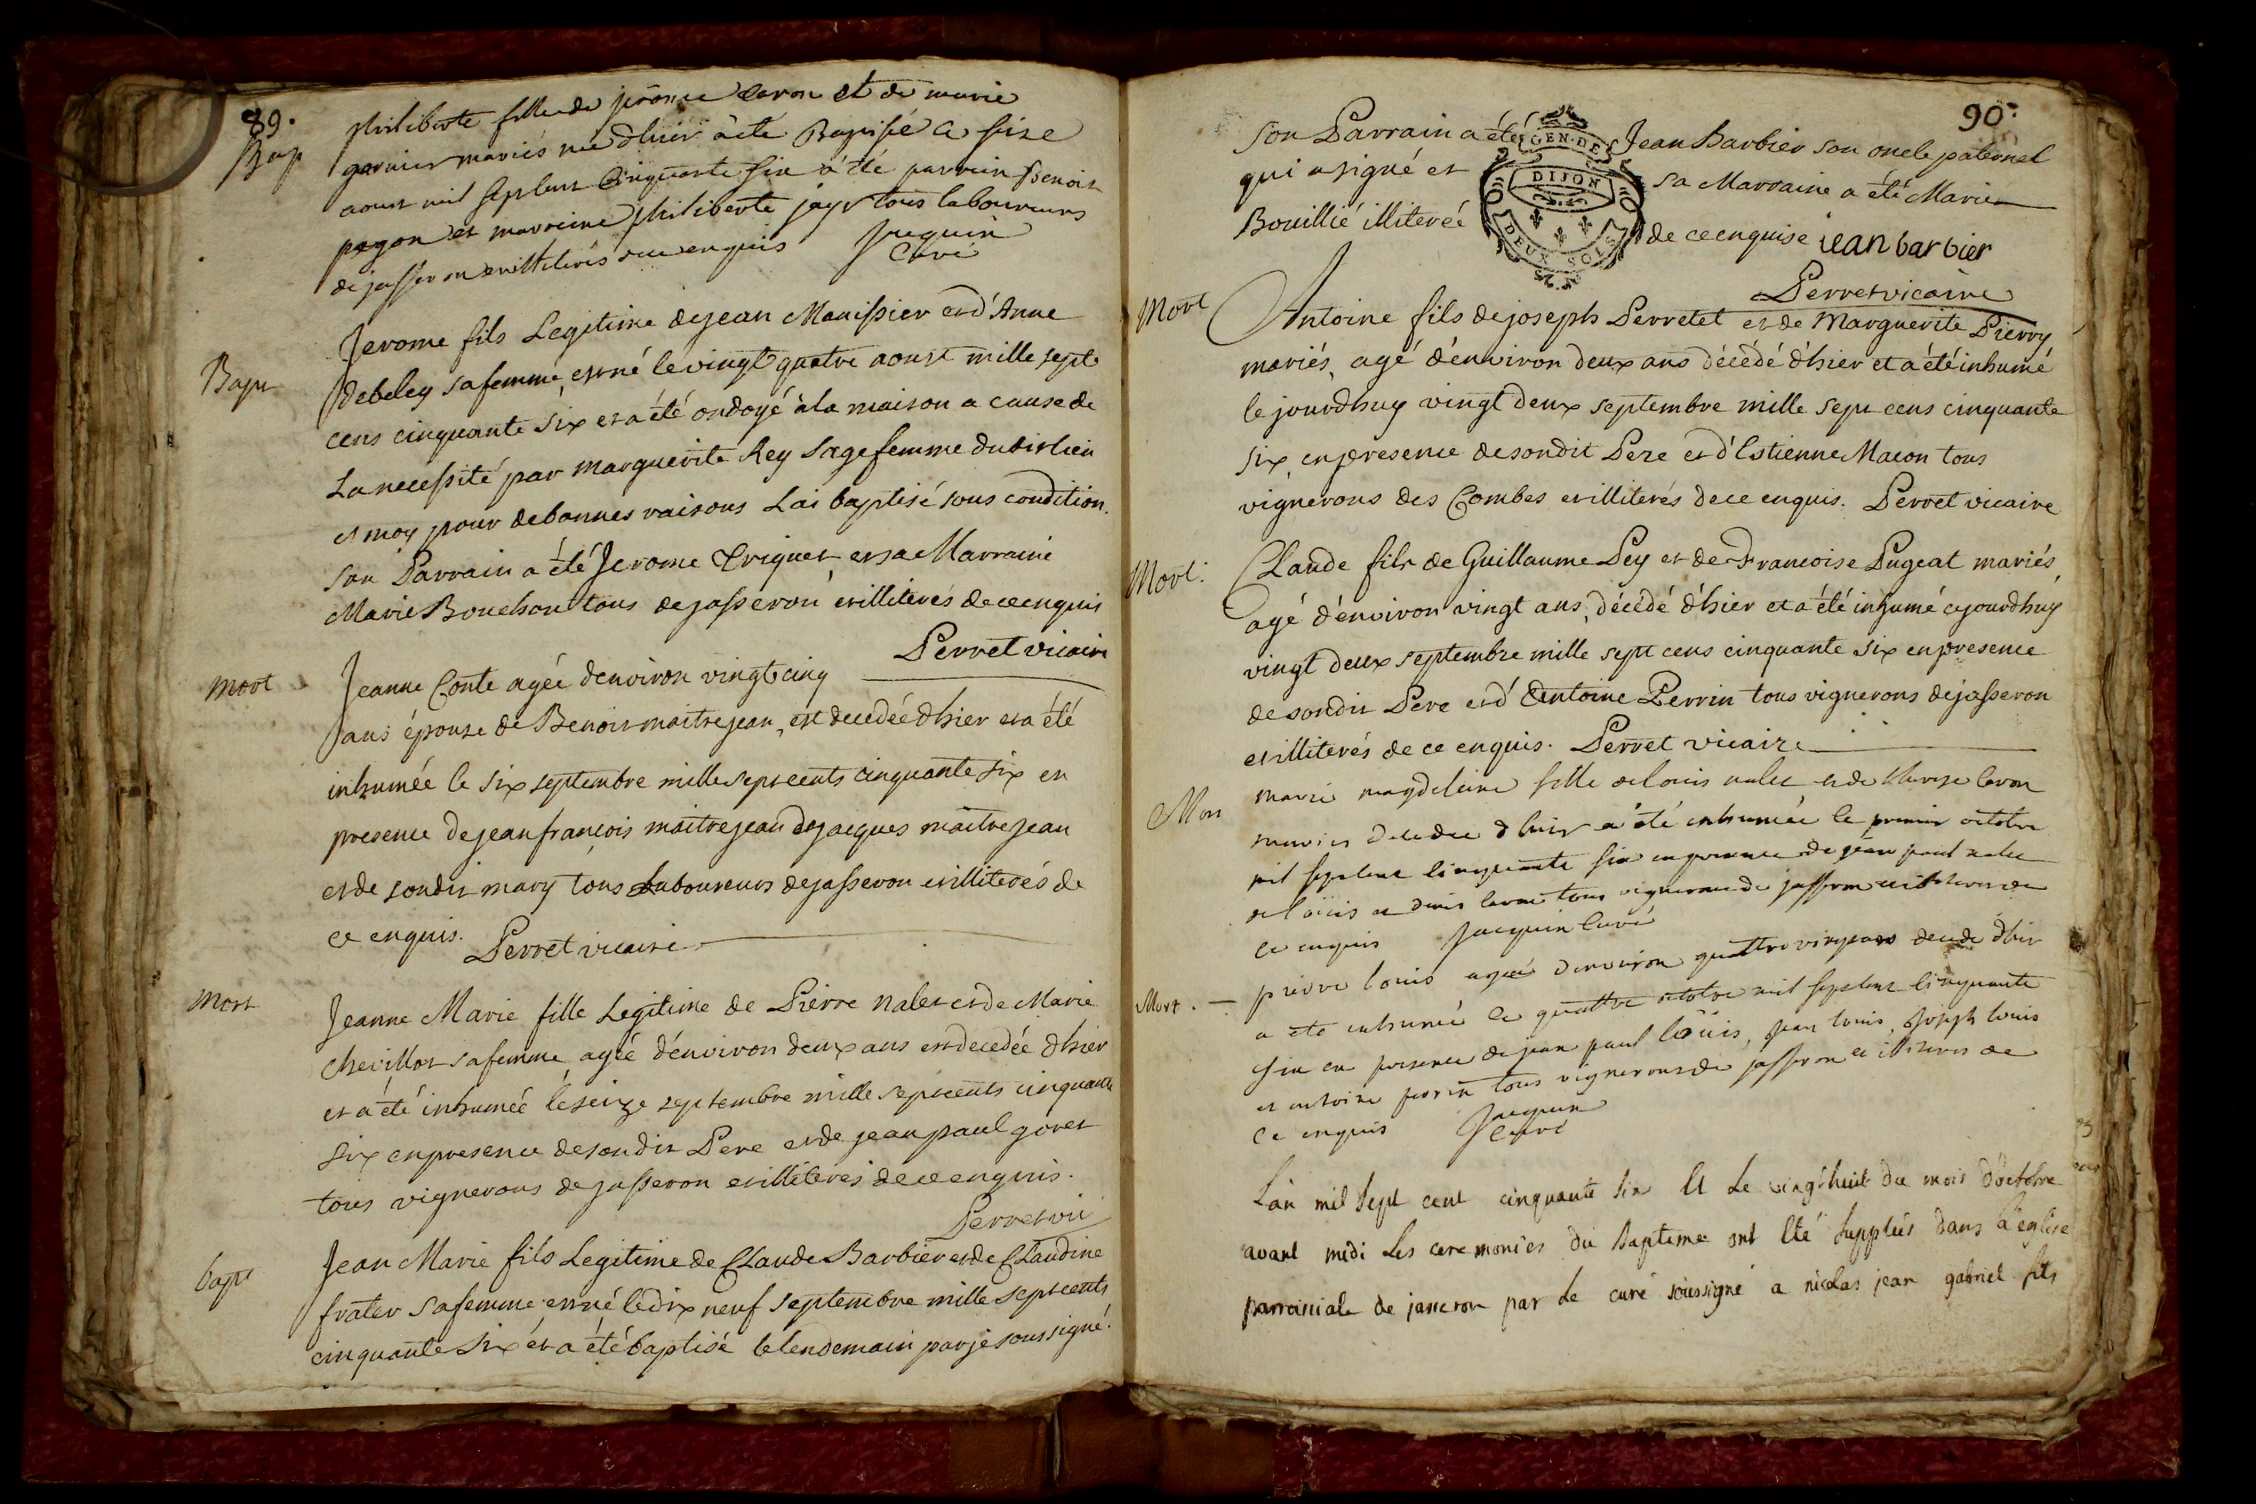 89.
Bap
philiberte fille de jerome caron et de marie
garnier mariés née d'hier à été Baptisé ce size
aoust mil sept cent Cinquante six à été parrain Benoit
pagon et marraine philiberte jayr tous laboureurs
de jasseron et illiterés de ce enquis Jacquin
Curé
Bapt
Jerome fils Legitime de jean Manissier et d'Anne
debeley sa femme, est né le vingt quatre aoust mille sept
cens cinquante six et a été ondoyé à la maison a cause de
La necessité par marguerite Rey sage femme dudit lieu
et moy pour de bonnes raisons L'ai baptisé sous condition.
son Parrain a été Jerome Triquet et sa Marraine
Marie Bouchou tous de jasseron et illiterés de ce enquis
Perret vicaire
mort
Jeanne Conte agée d'environ vingt cinq
ans épouse de Benoit maitrejean, est decedée d'hier et a été
inhumée le six septembre mille sept cents cinquante six en
presence de jean françois maitrejean de jacques maitrejean
et de sondit mary tous Laboureurs de jasseron et illiterés de
ce enquis. Perret vicaire
mort
Jeanne Marie fille Legitime de Pierre nalet et de Marie
chevillot sa femme, agée d'environ deux ans est decedée d'hier
et a été inhumée le seize septembre mille sept cents cinquante
six en presence de sondit Pere et de jean paul goret
tous vignerons de jasseron et illiterés de ce enquis.
Perret vic
bapt
Jean Marie fils Legitime de Claude Barbier et de Claudine
frater sa femme est né le dix neuf septembre mille sept cents
cinquante six et a été baptisé le lendemain par je soussigné.
90.
son Parrain a été Jean Barbier son oncle paternel
GEN. DE DIJON
DEUX SOLS
qui a signé et sa Marraine a été Marie
Bouillié illiterée de ce enquise jean barbier
Perret vicaire
Mort
Antoine fils de joseph Perretet et de Marguerite Pierry
mariés, agé d'environ deux ans décédé d'hier et a été inhumé
le jourdhuy vingt deux septembre mille sept cens cinquante
six en presence de sondit Pere et d'Estienne Macon tous
vignerons des Combes et illiterés de ce enquis. Perret vicaire
Mort.
Claude fils de Guillaume Pey et de Francoise Pugeat mariés
agé d'environ vingt ans, décédé d'hier et a été inhumé cejourdhuy
vingt deux septembre mille sept cens cinquante six en presence
de sondit Pere et d'Antoine Perrin tous vignerons de jasseron
et illiterés de ce enquis. Perret vicaire
Mort
marie magdeleine fille de louis nalet et de therese caron
mariés decedée d'hier a été inhumée le premier octobre
mil sept cent cinquante six en presence de jean paul nalet
de loüis et denis caron tous vignerons de jasseron et illiterés de
ce enquis Jacquin Curé
Mort.
pierre louis agée d'environ quattre vingt ans decedé d'hier
a été inhumé le quattre octobre mil sept cent cinquante
six en presence de jean paul loüis, jean louis, joseph louis
et antoine perrin tous vignerons de jasseron et illiterés de
ce enquis Jacquin
Curé
L'an mil sept cent cinquante six Et Le vingt huit du mois d'octobre
avant midi Les ceremonies du Bapteme ont Eté Supplées dans L'eglise
parroissiale de jasseron par Le curé soussigné a nicolas jean gabriel fils